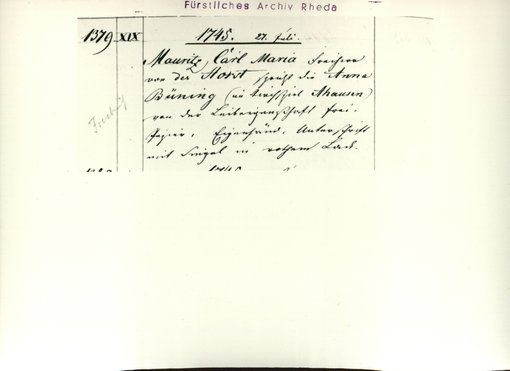 Fürstliches Archiv Rheda
1379 XIX 1745. 27. Juli.
Mauritz, Carl Maria Freiherr
von der Horst spricht die Anna
Büning (im Kirchspiel Ahausen)
von der Leibeigenschaft frei.
Papier, Eigenhänd. Unterschrift
mit Siegel in rothem Lack.